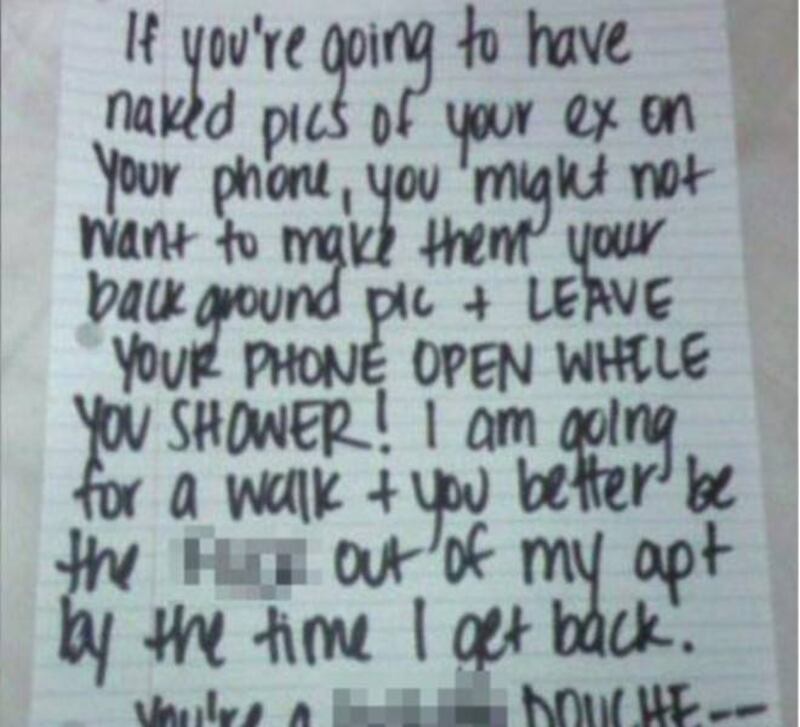 If you're going to have
naked pics of your ex on
your phone, you might not
want to make them your
background pic + LEAVE
YOUR PHONE OPEN WHILE
YOU SHOWER! I am going
for a walk + you better be
the out of my apt
by the time I get back.
You're a DOUCHE--